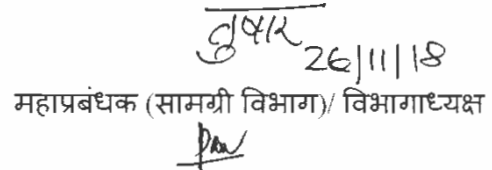 तुषार
26/11/18
महाप्रबंधक (सामग्री विभाग)/ विभागाध्यक्ष